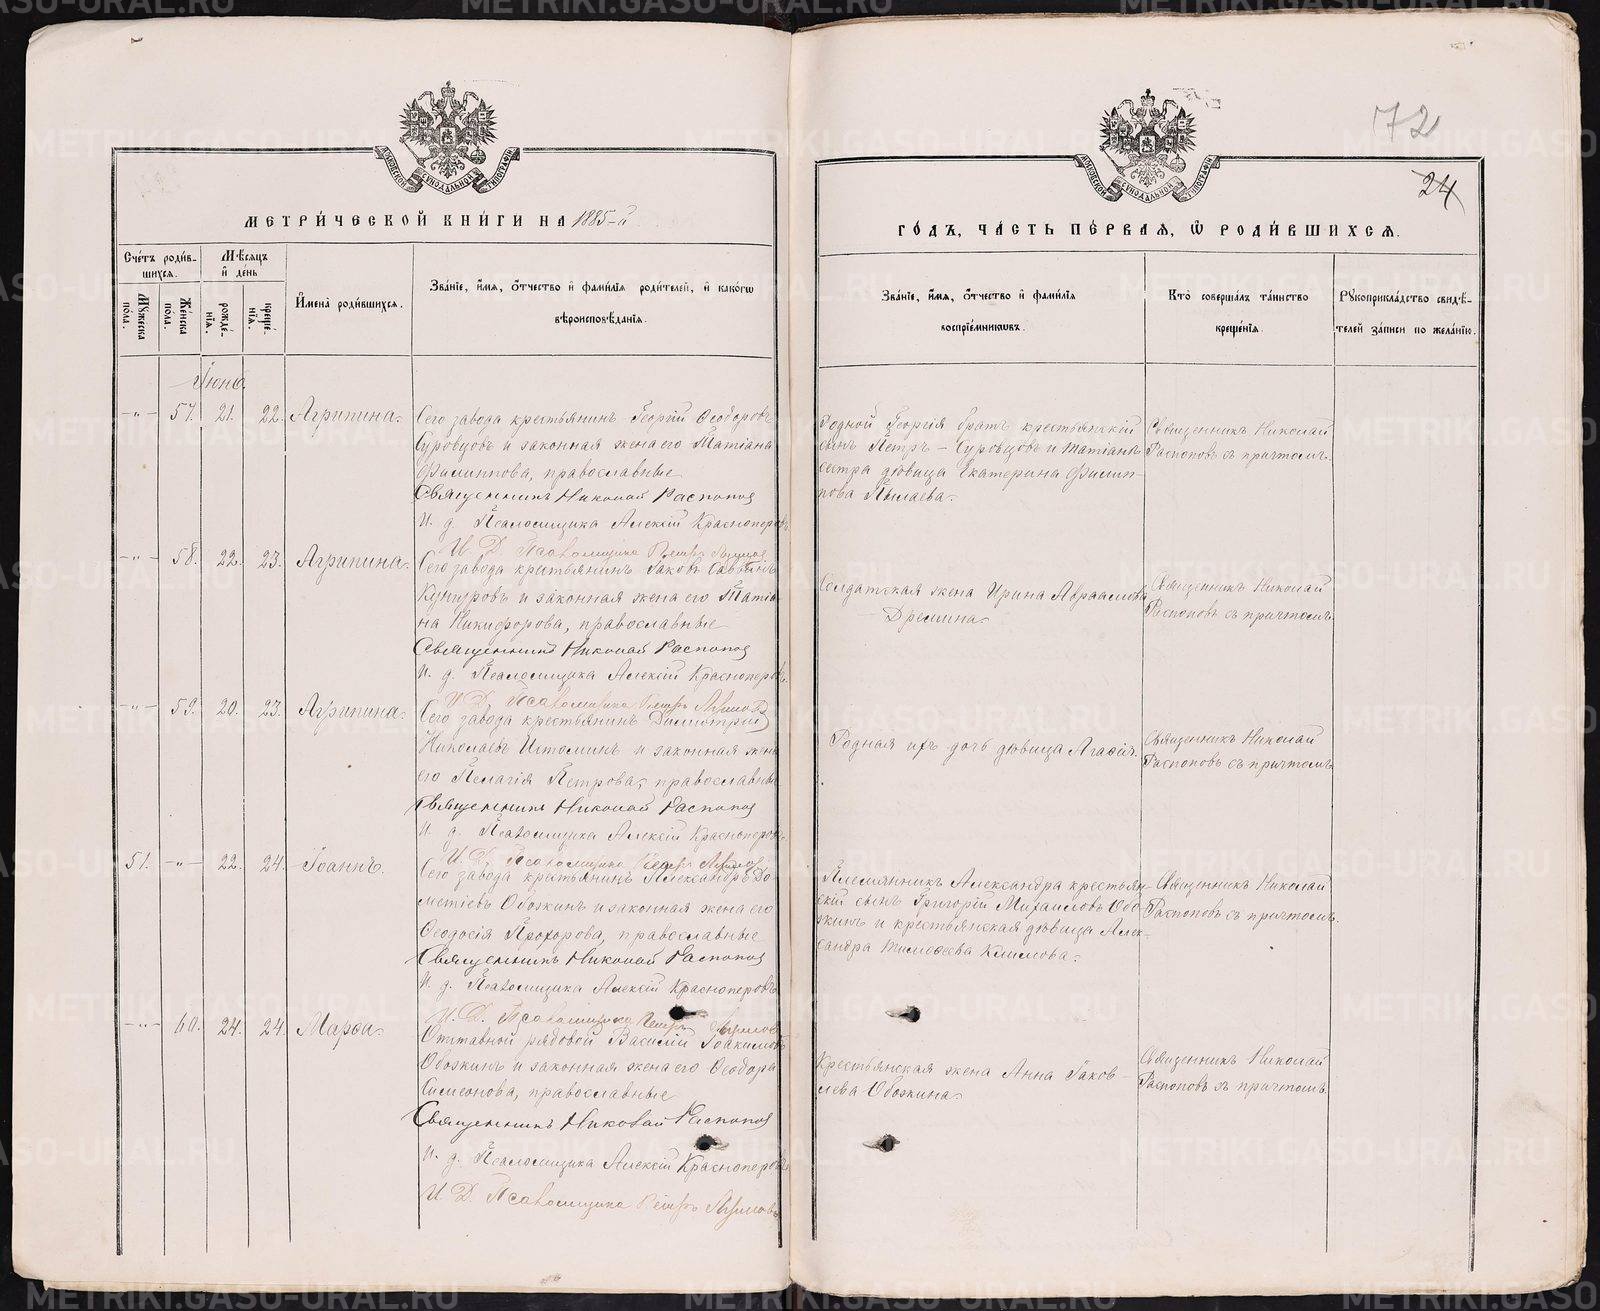 72
24
МОСКОВСКОЙ СѴНОДАЛЬНОЙ ТИПОГРАФІИ
МОСКОВСКОЙ СѴНОДАЛЬНОЙ ТИПОГРАФІИ
МЕТРИ́ЧЕСКОЙ КНИ́ГИ НА 1885-й
ГО́ДЪ, ЧА́СТЬ ПЕ́РВАЯ, Ѡ РОДИ́ВШИХСЯ.
Сче́тъ роди́в-
шихся.
Му́жеска по́ла.
Же́нска по́ла.
Мѣ́сяцъ
и҆ де́нь
рожде́-
нїѧ.
креще́-
нїѧ.
И҆мена̀ роди́вшихся.
Зва́нїе, и҆́мя, ѻ҆́тчество и҆ фами́лїя роди́телей, и҆ како́гѡ
вѣроисповѣ́данїя.
Зва́нїе, и҆́мя, ѻ҆́тчество и҆ фами́лїя
воспрїе́мникѡвъ.
Кто̀ соверша́лъ та́инство
креще́нїя.
Рꙋкоприкла́дство свидѣ́-
телей за́писи по жела́нїю.
Іюнь.
-"- 57. 21. 22. Агрипина.
Сего завода крестьянинъ Георгій Ѳеодоровъ
Суровцовъ и законная жена его Татіана
Филиппова, православные
Священникъ Николай Распоповъ
И. д. Псаломщика Алексій Красноперовъ
И. Д. Псаломщика Петръ
Родной Георгія братъ крестьянскій
сынъ Петръ Суровцовъ и Татіаны
сестра дѣвица Екатерина Филип-
пова Пылаева.
Священникъ Николай
Распоповъ съ причтомъ.
-"- 58. 22. 23. Агрипина.
Сего завода крестьянинъ Іаковъ Саввинъ
Кунгуровъ и законная жена его Татіа-
на Никифорова, православные
Священникъ Николай Распоповъ
И. д. Псаломщика Алексій Красноперовъ
И. Д. Псаломщика Петръ
Солдатская жена Ирина Авраамова
Дремина.
Священникъ Николай
Распоповъ съ причтомъ
-"- 59. 20. 23. Агрипина.
Сего завода крестьянинъ Димитрій
Николаевъ Истоминъ и законная жена
его Пелагія Петрова, православные
Священникъ Николай Распоповъ
И. д. Псаломщика Алексій Красноперовъ
И. Д. Псаломщика Петръ
Родная ихъ дочь дѣвица Агаѳія.
Священникъ Николай
Распоповъ съ причтомъ
51. -"- 22. 24. Іоаннъ.
Сего завода крестьянинъ Александръ До-
метіевъ Обожинъ и законная жена его
Ѳеодосія Прохорова, православные
Священникъ Николай Распоповъ
И. д. Псаломщика Алексій Красноперовъ
И. Д. Псаломщика Петръ
Племянникъ Александра крестьян-
скій сынъ Григорій Михаиловъ Обо-
жинъ и крестьянская дѣвица Алек-
сандра Тимоѳеева Климова.
Священникъ Николай
Распоповъ съ причтомъ.
-"- 60. 24. 24. Марѳа.
Отставной рядовой Василій Іоакимовъ
Обожинъ и законная жена его Ѳеодора
Симеонова, православные
Священникъ Николай Распоповъ
И. д. Псаломщика Алексій Красноперовъ
И. Д. Псаломщика Петръ
Крестьянская жена Анна Іаков-
лева Обожина.
Священникъ Николай
Распоповъ съ причтомъ
METRIKI.GASO-URAL.RU